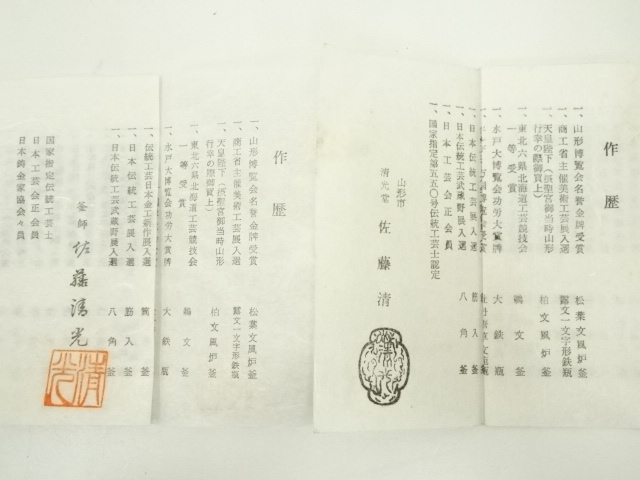 作歴
一、山形博覧会名誉金牌受賞 松葉文風炉釜
一、商工省主催美術工芸展入選 露文一文字形鉄瓶
一、天皇陛下(摂聖宮御当時山形
行幸の際御買上) 柏文風炉釜
一、東北六県北海道工芸競技会
一等受賞 鶴文釜
一、水戸大博覧会功労大賞牌 大鉄瓶
一、日本伝統工芸展入選 筋入釜
一、日本伝統工芸武蔵野展入選 八角釜
一、日本工芸会正会員
一、国家指定第五五〇号伝統工芸士認定
山形市
清光堂 佐藤清
作歴
一、山形博覧会名誉金牌受賞 松葉文風炉釜
一、商工省主催美術工芸展入選 露文一文字形鉄瓶
一、天皇陛下(摂聖宮御当時山形
行幸の際御買上) 柏文風炉釜
一、東北六県北海道工芸競技会
一等受賞 鶴文釜
一、水戸大博覧会功労大賞牌 大鉄瓶
一、伝統工芸日本金工新作展入選 釜
一、日本伝統工芸展入選 筋入釜
一、日本伝統工芸武蔵野展入選 八角釜
国家指定伝統工芸士
日本工芸会正会員
日本鋳金家協会々員
釜師 佐藤清光
清光